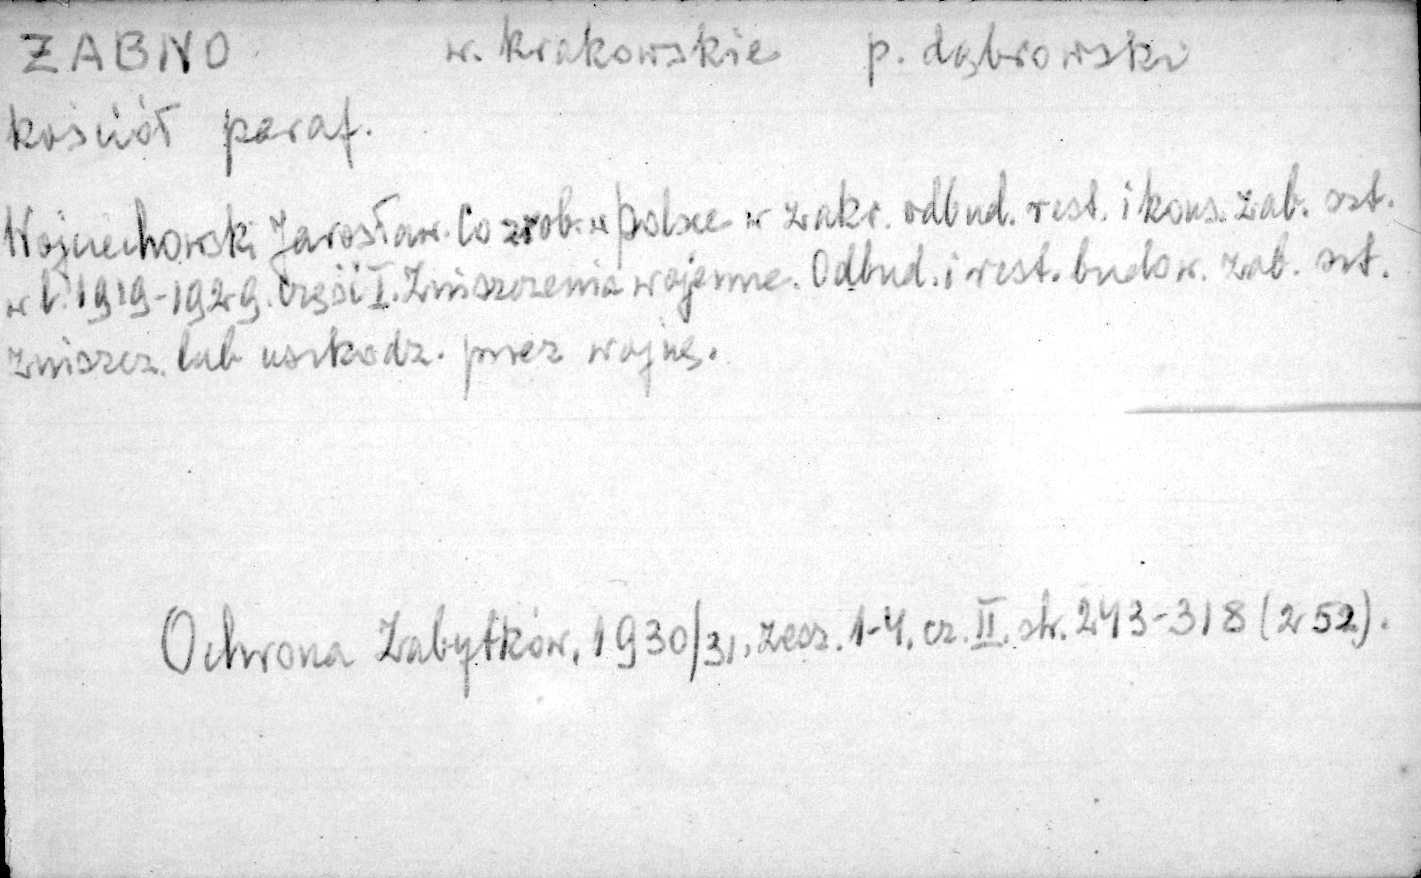 ZABNO w. krakowskie p. dąbrowski
kościół paraf.
Wojciechowski Jarosław. Co zrob. w Polsce w zakr. odbud. rest. i kons. zab. szt.
w l. 1919-1929. Część I. Zniszczenia wojenne. Odbud. i rest. budow. zab. szt.
zniszcz. lub uszkodz. przez wojnę.
Ochrona Zabytków, 1930/31, zesz. 1-4, cz. II. str. 243-318 (252).